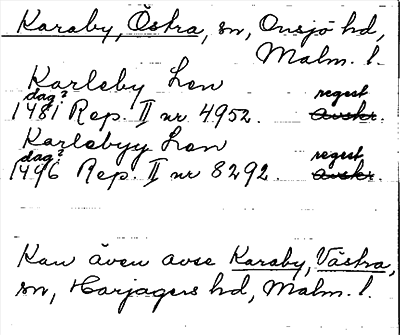 Karaby, Östra, sn, Onsjö hd,
Malm. l.
Karleby Len
dag? regest
1481 Rep. II nr 4952. avskr.
Karlebyy Len
dag? regest
1496 Rep. II nr 8292. avskr.
Kan även avse Karaby, Västra,
sn, Harjagers hd, Malm. l.